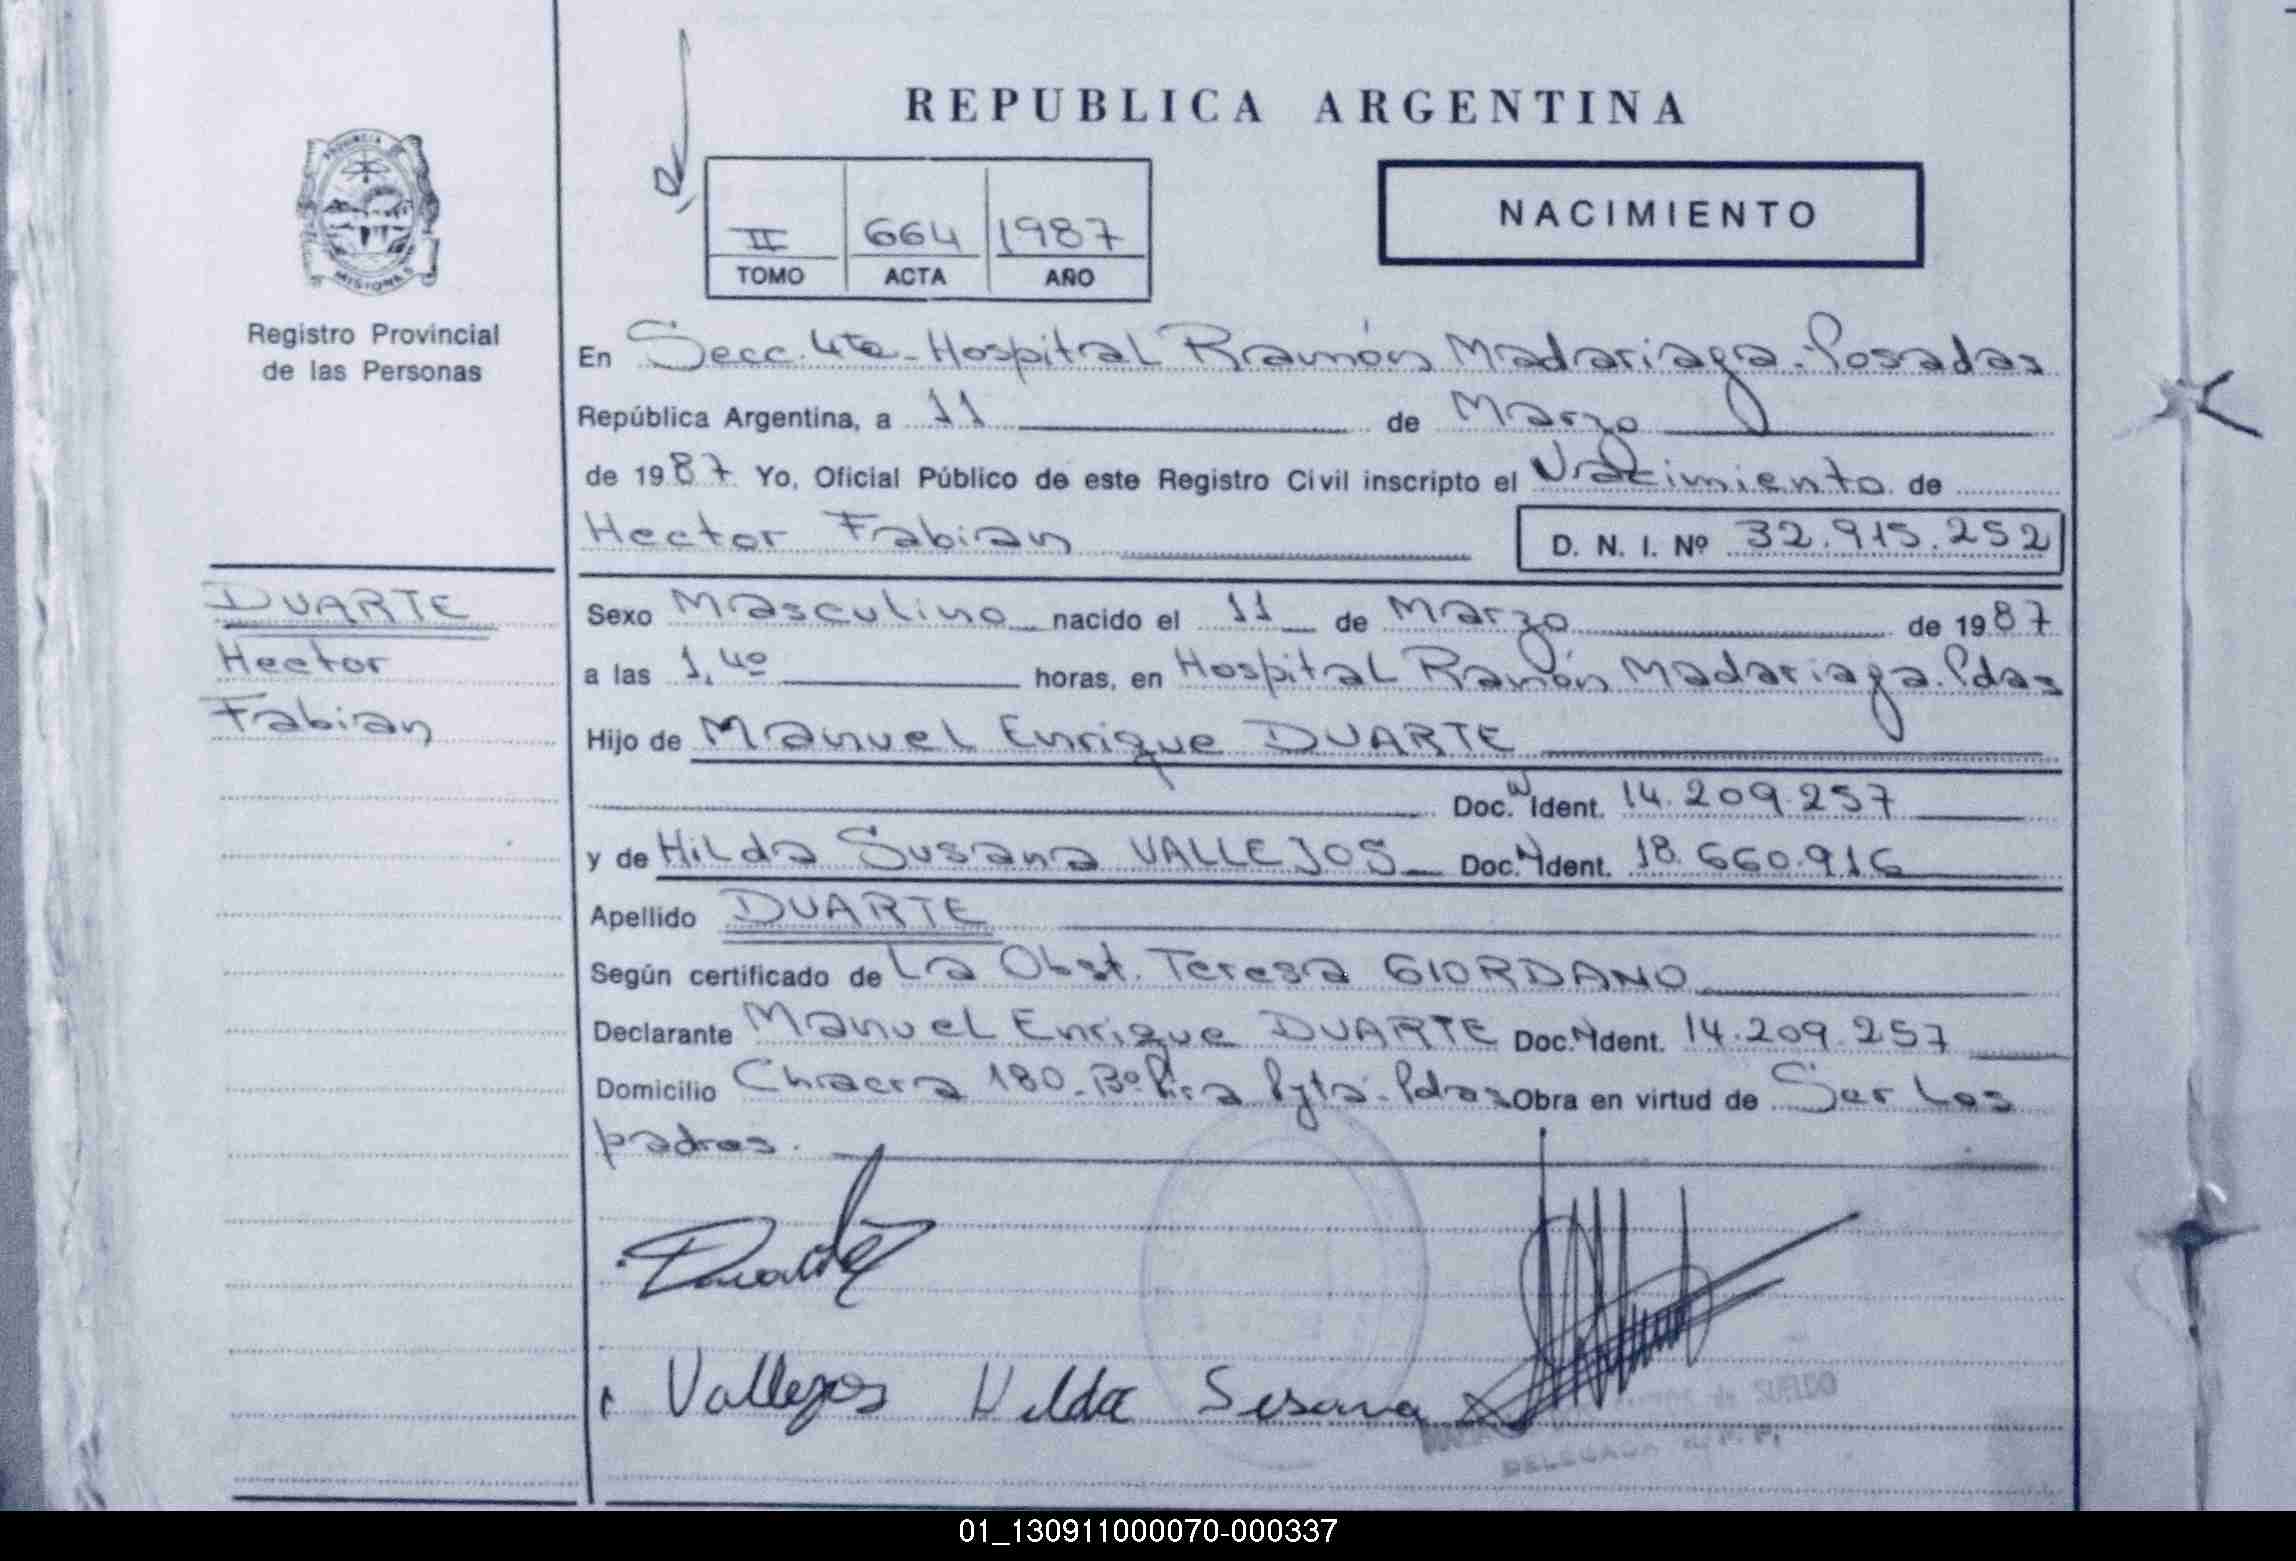 REPUBLICA ARGENTINA
PROVINCIA DE
MISIONES
Registro Provincial
de las Personas
II 664 1987
TOMO ACTA AÑO
NACIMIENTO
En Secc. 4ta - Hospital Ramón Madariaga - Posadas
República Argentina, a 11 de Marzo
de 1987 Yo, Oficial Público de este Registro Civil inscripto el Nacimiento de
Hector Fabian D. N. I. Nº 32.915.252
DUARTE
Hector
Fabian
Sexo Masculino nacido el 11 de Marzo de 1987
a las 1,40 horas, en Hospital Ramón Madariaga. Pdas
Hijo de Manuel Enrique DUARTE
Doc. N Ident. 14.209.257
y de Hilda Susana VALLEJOS Doc. N Ident. 18.660.916
Apellido DUARTE
Según certificado de La Obst. Teresa GIORDANO
Declarante Manuel Enrique DUARTE Doc. N Ident. 14.209.257
Domicilio Chacra 180 - Bº Pira Pytá - Pdas Obra en virtud de Ser Los
padres.
Duarte
Vallejos Hilda Susana
de SUELDO
DELEGADA
01_130911000070-000337